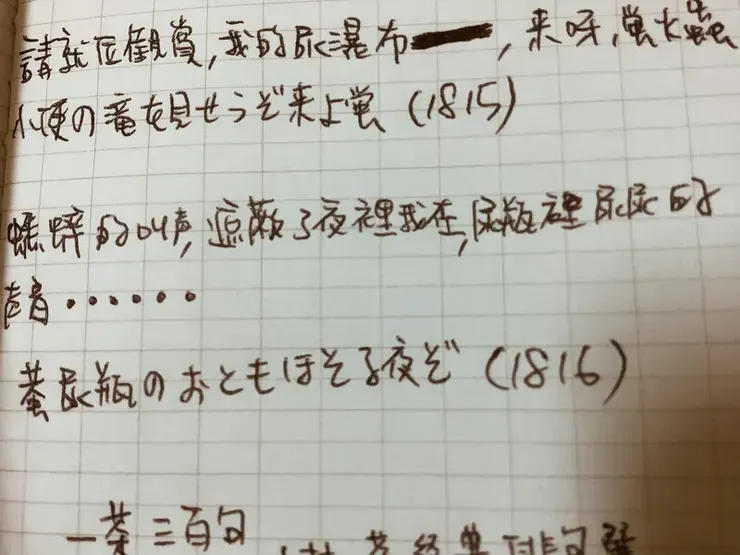 請就位觀賞,我的尿瀑布——,来呀,螢火蟲
小便の滝を見せうぞ来よ螢 (1815)
蟋蟀的叫声,遮蔽了夜裡我在,尿瓶裡尿尿的
声音······
蛬尿瓶のおともほそる夜ぞ (1816)
一茶三百句